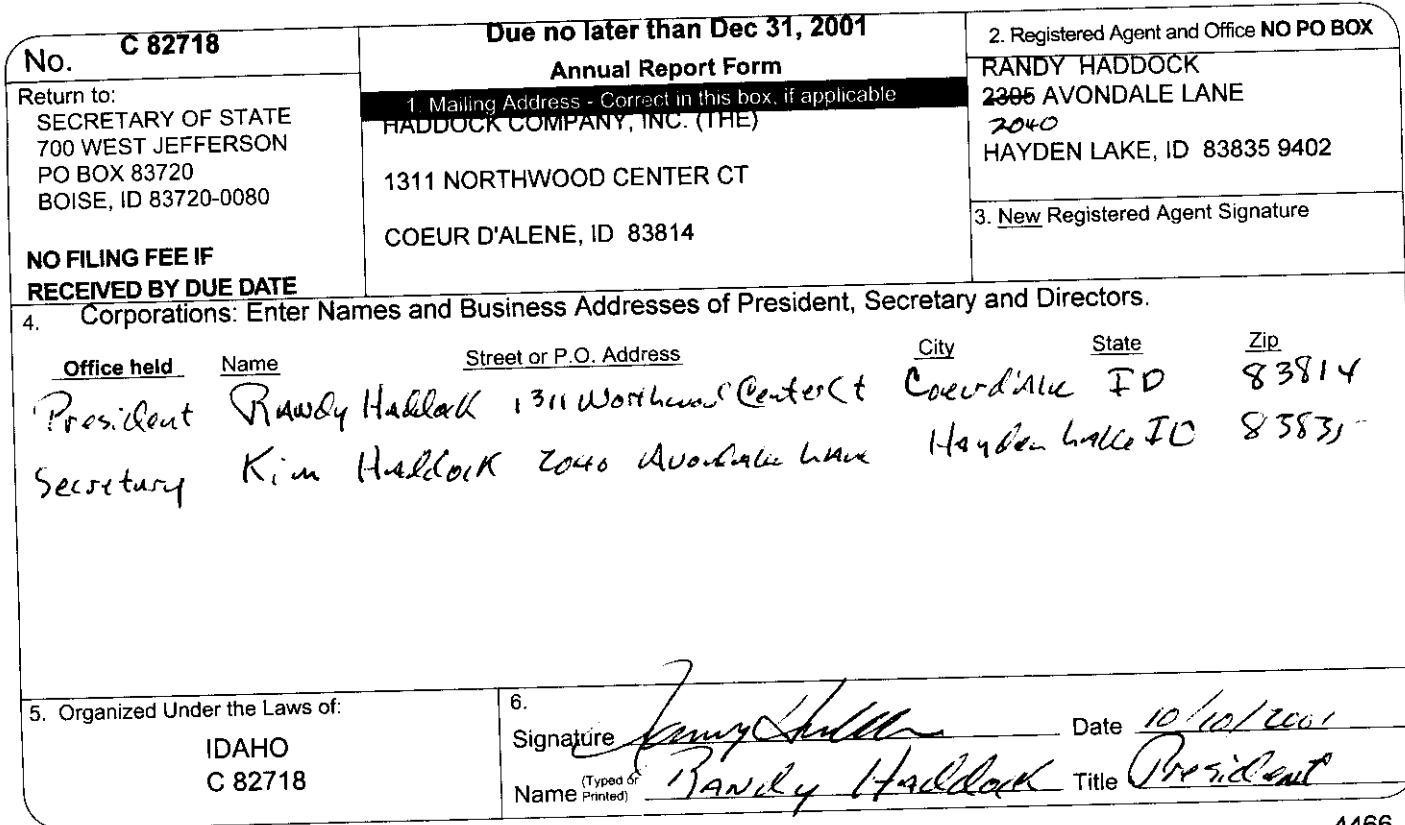 No. C 82718
Return to:
SECRETARY OF STATE
700 WEST JEFFERSON
PO BOX 83720
BOISE, ID 83720-0080
NO FILING FEE IF
RECEIVED BY DUE DATE
Due no later than Dec 31, 2001
Annual Report Form
1. Mailing Address - Correct in this box, if applicable
HADDOCK COMPANY, INC. (THE)
1311 NORTHWOOD CENTER CT
COEUR D'ALENE, ID 83814
2. Registered Agent and Office NO PO BOX
RANDY HADDOCK
2305 AVONDALE LANE
2040
HAYDEN LAKE, ID 83835 9402
3. New Registered Agent Signature
4. Corporations: Enter Names and Business Addresses of President, Secretary and Directors.
Office held Name Street or P.O. Address City State Zip
President Randy Haddock 1311 Northwood Center Ct Coeur d'Alene ID 83814
Secretary Kim Haddock 2040 Avondale Lane Hayden Lake ID 83835
5. Organized Under the Laws of:
IDAHO
C 82718
6.
Signature Date 10/10/2001
Name (Typed or Printed) Randy Haddock Title President
4466